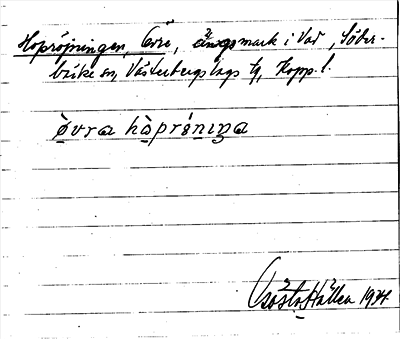 Hopröjningen, Övre, ängsmark i Vad, Söder-
bärke sn, Västerbergslags tg, Kopp. l.
òvra hòprö́niŋa
Hallen 1934.